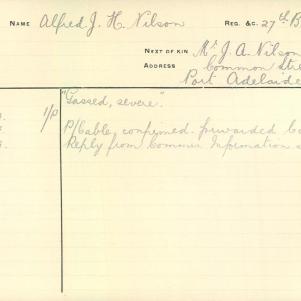 NAME Alfred J. H. Nilson REG. &C. 27th B
NEXT OF KIN Mr J. A. Nilson
ADDRESS Common Stre
Port Adelaide
"Gassed, severe".
1/P P/Cable, confirmed. forwarded
Reply from Commr Information